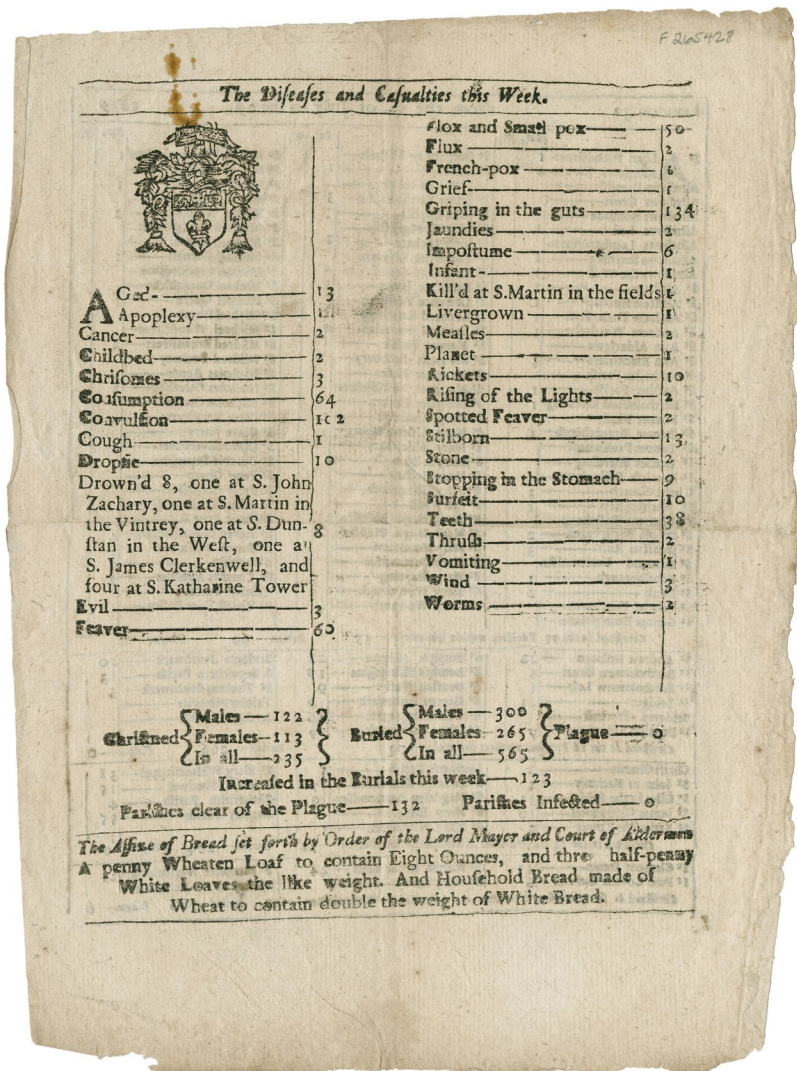 F 265428
The Diſeaſes and Caſualties this Week.
AGed- 13
Apoplexy
Cancer 2
Childbed 2
Chriſomes 3
Conſumption 64
Convulſion 102
Cough 1
Dropſie 10
Drown'd 8, one at S. John
Zachary, one at S. Martin in
the Vintrey, one at S. Dun-
ſtan in the Weſt, one at 8
S. James Clerkenwell, and
four at S. Katharine Tower
Evil 3
Feaver 60
Flox and Small pox 50
Flux 2
French-pox
Grief 1
Griping in the guts 134
Jaundies 2
Impoſtume 6
Infant 1
Kill'd at S. Martin in the fields 1
Livergrown 1
Meaſles 2
Planet 1
Rickets 10
Riſing of the Lights 2
Spotted Feaver 2
Stilborn 13
Stone 2
Stopping in the Stomach 9
Surfeit 10
Teeth 38
Thruſh 2
Vomiting 1
Wind 3
Worms 2
Chriſtned { Males — 122 Females — 113 In all — 235 }
Buried { Males — 300 Females — 265 In all — 565 } Plague — 0
Increaſed in the Burials this week — 123
Pariſhes clear of the Plague — 132 Pariſhes Infected — 0
The Aſſize of Bread ſet forth by Order of the Lord Mayor and Court of Aldermen
A penny Wheaten Loaf to contain Eight Ounces, and three half-penny
White Loaves the like weight. And Houſehold Bread made of
Wheat to contain double the weight of White Bread.